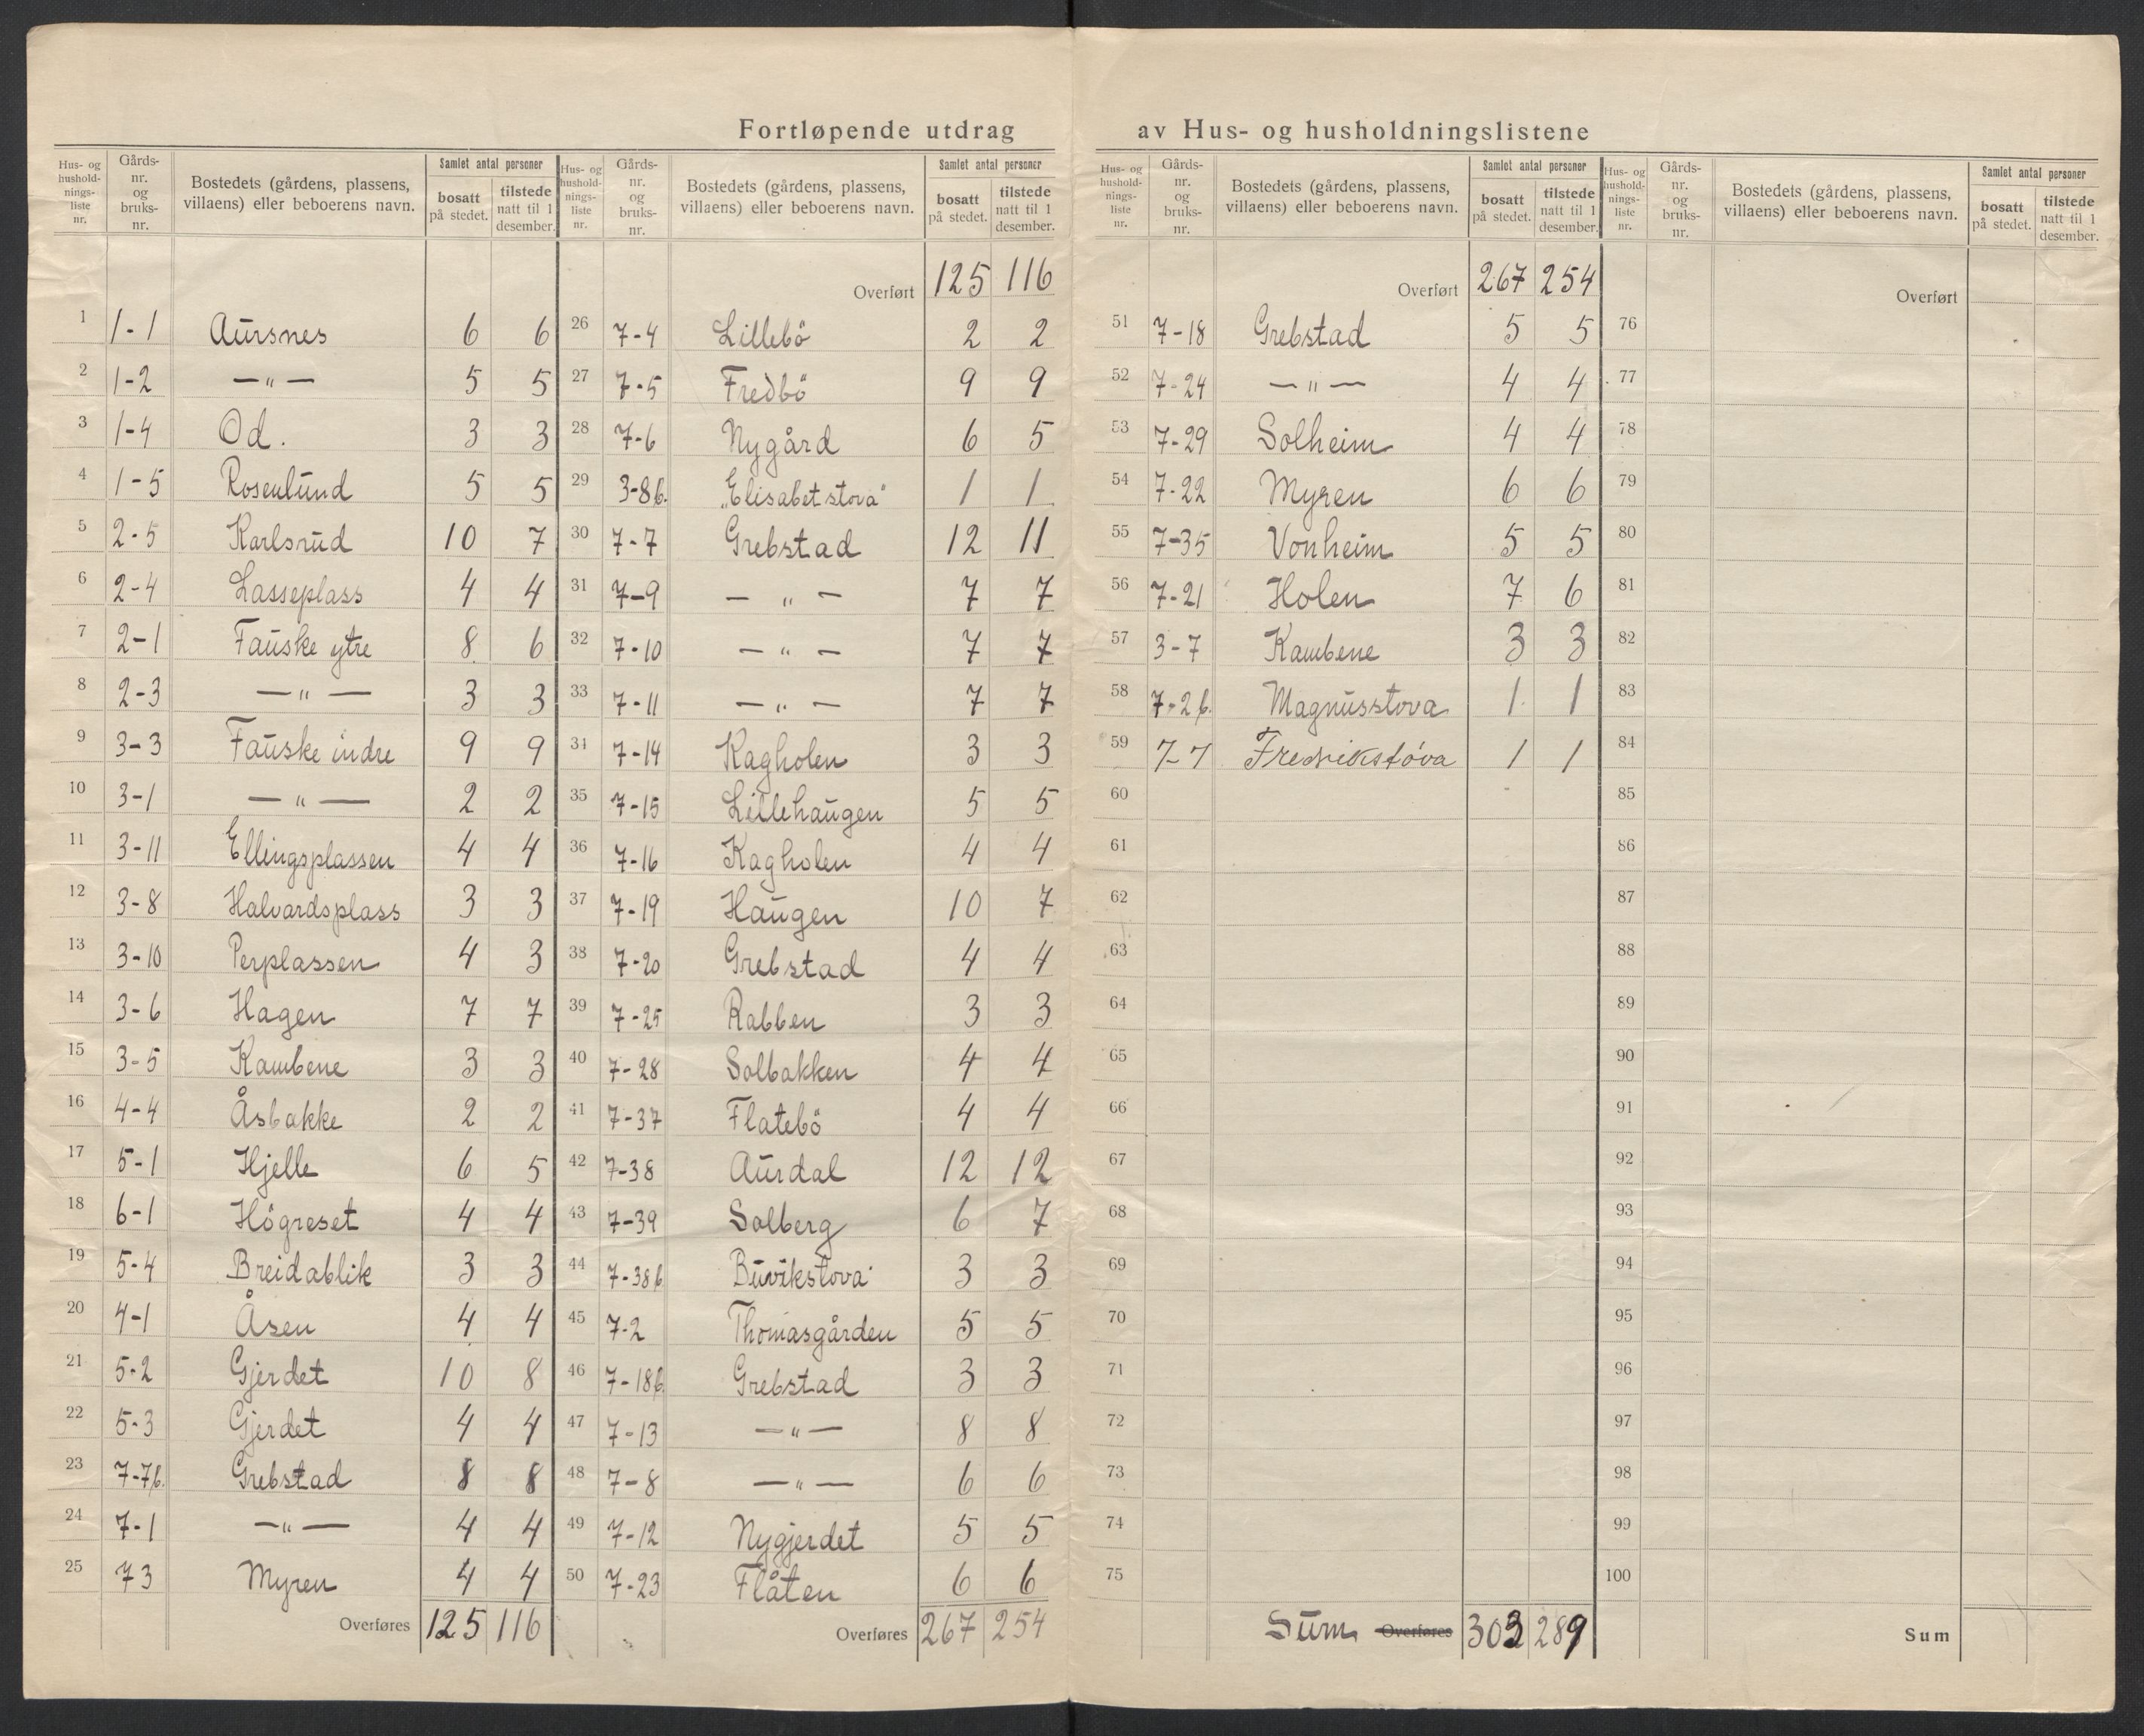 Fortløpende utdrag av Hus- og husholdningslistene
Hus- og hushold-nings-liste nr. | Gårds-nr. og bruks-nr. | Bostedets (gårdens, plassens, villaens) eller beboerens navn. | Samlet antal personer | bosatt på stedet. | tilstede natt til 1 desember.
1 1-1 Aursnes 6 6
2 1-2 —„— 5 5
3 1-4 Od. 3 3
4 1-5 Rosenlund 5 5
5 2-5 Karlsrud 10 7
6 2-4 Lasseplass 4 4
7 2-1 Fauske ytre 8 6
8 2-3 —„— 3 3
9 3-3 Fauske indre 9 9
10 3-1 —„— 2 2
11 3-11 Ellingsplassen 4 4
12 3-8 Halvardsplass 3 3
13 3-10 Perplassen 4 3
14 3-6 Hagen 7 7
15 3-5 Kambene 3 3
16 4-4 Åsbakke 2 2
17 5-1 Hjelle 6 5
18 6-1 Högreset 4 4
19 5-4 Breidablik 3 3
20 4-1 Åsen 4 4
21 5-2 Gjerdet 10 8
22 5-3 Gjerdet 4 4
23 7-7b. Grebstad 8 8
24 7-1 —„— 4 4
25 7 3 Myren 4 4
Overføres 125 116
Hus- og hushold-nings-liste nr. | Gårds-nr. og bruks-nr. | Bostedets (gårdens, plassens, villaens) eller beboerens navn. | Samlet antal personer | bosatt på stedet. | tilstede natt til 1 desember.
Overført 125 116
26 7-4 Lillebö 2 2
27 7-5 Fredbö 9 9
28 7-6 Nygård 6 5
29 3-8b. „Elisabetstova" 1 1
30 7-7 Grebstad 12 11
31 7-9 — „ — 7 7
32 7-10 — „ — 7 7
33 7-11 — „ — 7 7
34 7-14 Kagholen 3 3
35 7-15 Lillehaugen 5 5
36 7-16 Kagholen 4 4
37 7-19 Haugen 10 7
38 7-20 Grebstad 4 4
39 7-25 Rabben 3 3
40 7-28 Solbakken 4 4
41 7-37 Flatebö 4 4
42 7-38 Aurdal 12 12
43 7-39 Solberg 6 7
44 7-38b Buvikstova 3 3
45 7-2 Thomasgården 5 5
46 7-18b. Grebstad 3 3
47 7-13 —„— 8 8
48 7-8 —„— 6 6
49 7-12 Nygjerdet 5 5
50 7-23 Flåten 6 6
Overføres 267 254
Hus- og hushold-nings-liste nr. | Gårds-nr. og bruks-nr. | Bostedets (gårdens, plassens, villaens) eller beboerens navn. | Samlet antal personer | bosatt på stedet. | tilstede natt til 1 desember.
Overført 267 254
51 7-18 Grebstad 5 5
52 7-24 —„— 4 4
53 7-29 Solheim 4 4
54 7-22 Myren 6 6
55 7-35 Vonheim 5 5
56 7-21 Holen 7 6
57 3-7 Kambene 3 3
58 7-2b. Magnusstova 1 1
59 7-7 Fredrikstova 1 1
60
61
62
63
64
65
66
67
68
69
70
71
72
73
74
75
Sum Overføres 303 289
Hus- og hushold-nings-liste nr. | Gårds-nr. og bruks-nr. | Bostedets (gårdens, plassens, villaens) eller beboerens navn. | Samlet antal personer | bosatt på stedet. | tilstede natt til 1 desember.
Overført
76
77
78
79
80
81
82
83
84
85
86
87
88
89
90
91
92
93
94
95
96
97
98
99
100
Sum